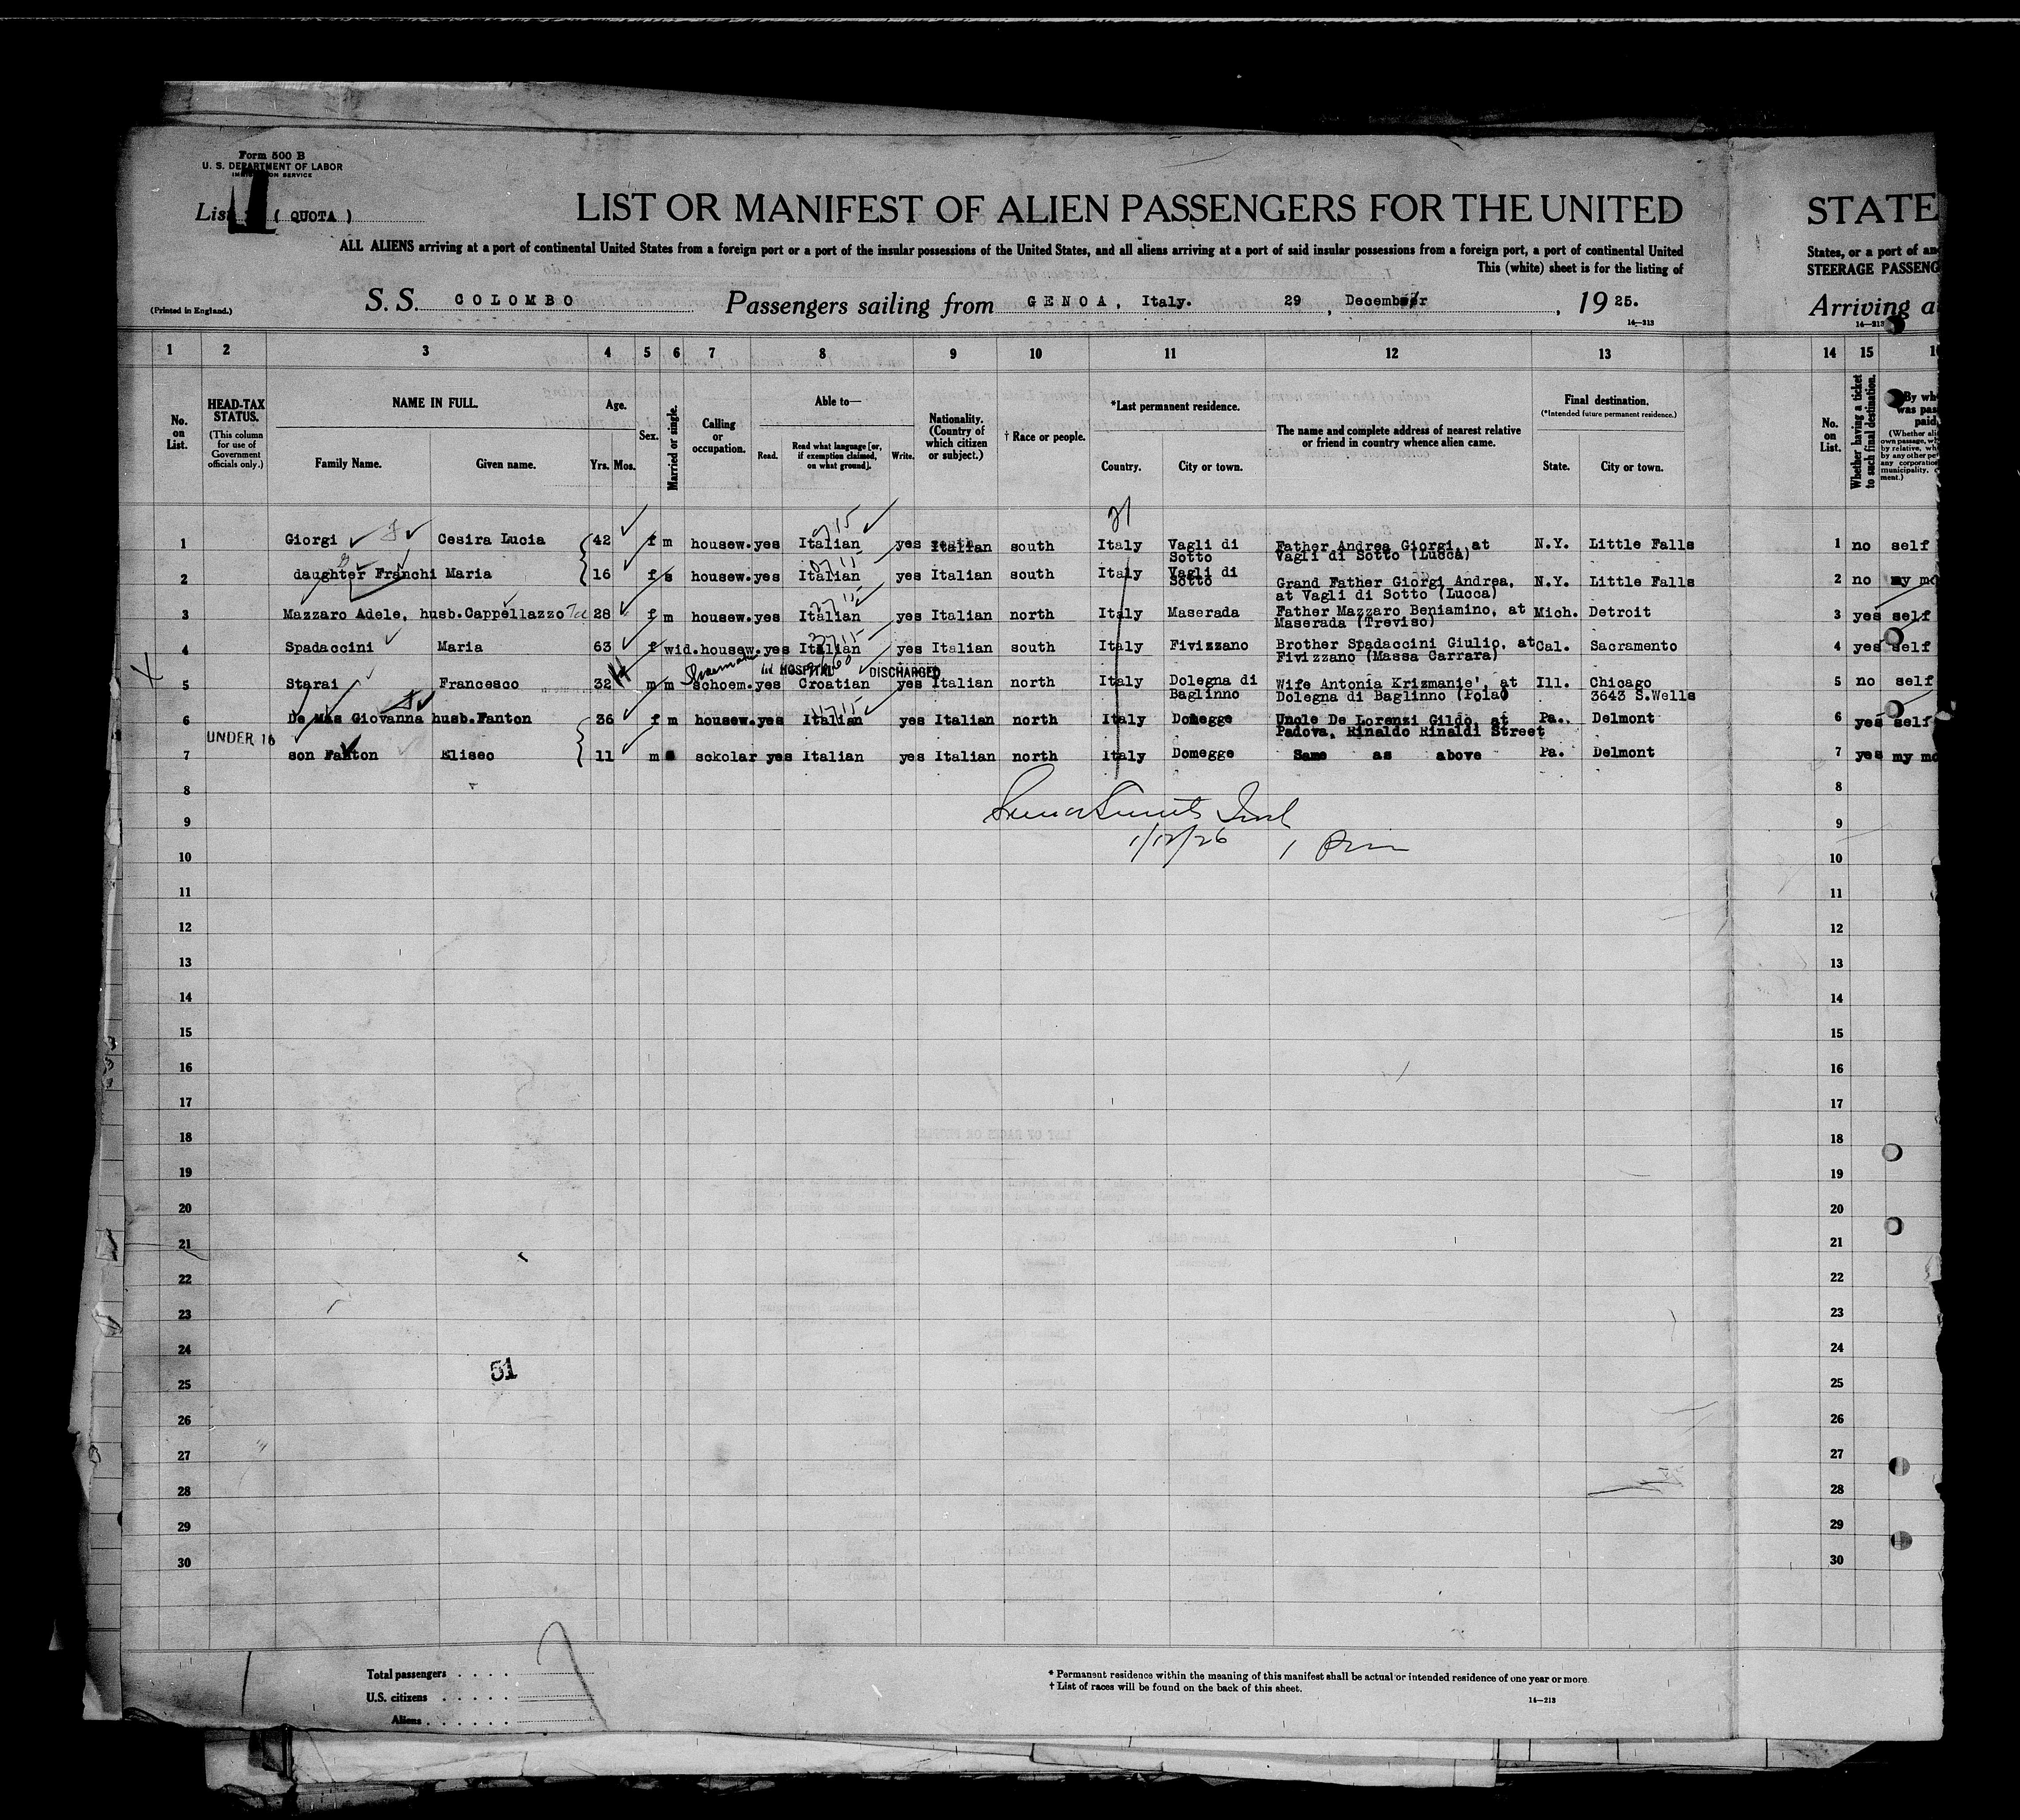 Form 500 B
U. S. DEPARTMENT OF LABOR
IMMIGRATION SERVICE
List 1 ( QUOTA )
LIST OR MANIFEST OF ALIEN PASSENGERS FOR THE UNITED
STATE
ALL ALIENS arriving at a port of continental United States from a foreign port or a port of the insular possessions of the United States, and all aliens arriving at a port of said insular possessions from a foreign port, a port of continental United
States, or a port of an
This (white) sheet is for the listing of
STEERAGE PASSENG
(Printed in England.)
S. S. COLOMBO Passengers sailing from GENOA, Italy. 29 , December , 19 25.
Arriving a
14—213
14—213
1 2 3 4 5 6 7 8 9 10 11 12 13 14 15
No. on List.
HEAD-TAX STATUS.
(This column for use of Government officials only.)
NAME IN FULL.
Family Name. Given name.
Age.
Yrs. Mos.
Sex.
Married or single.
Calling or occupation.
Able to—
Read. Read what language [or, if exemption claimed, on what ground]. Write.
Nationality. (Country of which citizen or subject.)
† Race or people.
*Last permanent residence.
Country. City or town.
The name and complete address of nearest relative or friend in country whence alien came.
Final destination.
(*Intended future permanent residence.)
State. City or town.
No. on List.
Whether having a ticket to such final destination.
By wh
was pas
paid
(Whether ali
own passage, w
by relative, wh
by any other pe
any corporatio
municipality,
ment.)
21
1 Giorgi Cesira Lucia 42 f m housew. yes Italian yes Italian south Italy Vagli di Sotto Father Andrea Giorgi, at Vagli di Sotto (Lucca) N.Y. Little Falls 1 no self
2 daughter Franchi Maria 16 f s housew. yes Italian yes Italian south Italy Vagli di Sotto Grand Father Giorgi Andrea, at Vagli di Sotto (Lucca) N.Y. Little Falls 2 no my mo
3 Mazzaro Adele, husb.Cappellazzo 28 f m housew. yes Italian yes Italian north Italy Maserada Father Mazzaro Beniamino, at Maserada (Treviso) Mich. Detroit 3 yes self
4 Spadaccini Maria 63 f wid. housew. yes Italian yes Italian south Italy Fivizzano Brother Spadaccini Giulio, at Fivizzano (Massa Carrara) Cal. Sacramento 4 yes self
Shoemaker In HOSPITAL DISCHARGED
5 Starai Francesco 32 m m schoem. yes Croatian yes Italian north Italy Dolegna di Baglinno Wife Antonia Krizmanie', at Dolegna di Baglinno (Pola) Ill. Chicago 3643 S.Wells 5 no self
6 De Mas Giovanna husb.Fanton 36 f m housew. yes Italian yes Italian north Italy Domegge Uncle De Lorenzi Gildo, at Padova, Rinaldo Rinaldi Street Pa. Delmont 6 yes self
UNDER 16
7 son Fanton Eliseo 11 m schkolar yes Italian yes Italian north Italy Domegge Same as above Pa. Delmont 7 yes my mo
8 8
9 9
1/12/26
10 10
11 11
12 12
13 13
14 14
15 15
16 16
17 17
18 18
19 19
20 20
21 21
22 22
23 23
24 24
51
25 25
26 26
27 27
28 28
29 29
30 30
Total passengers . . . .
U.S. citizens . . . . .
Aliens . . . . . .
* Permanent residence within the meaning of this manifest shall be actual or intended residence of one year or more.
† List of races will be found on the back of this sheet.
14—213